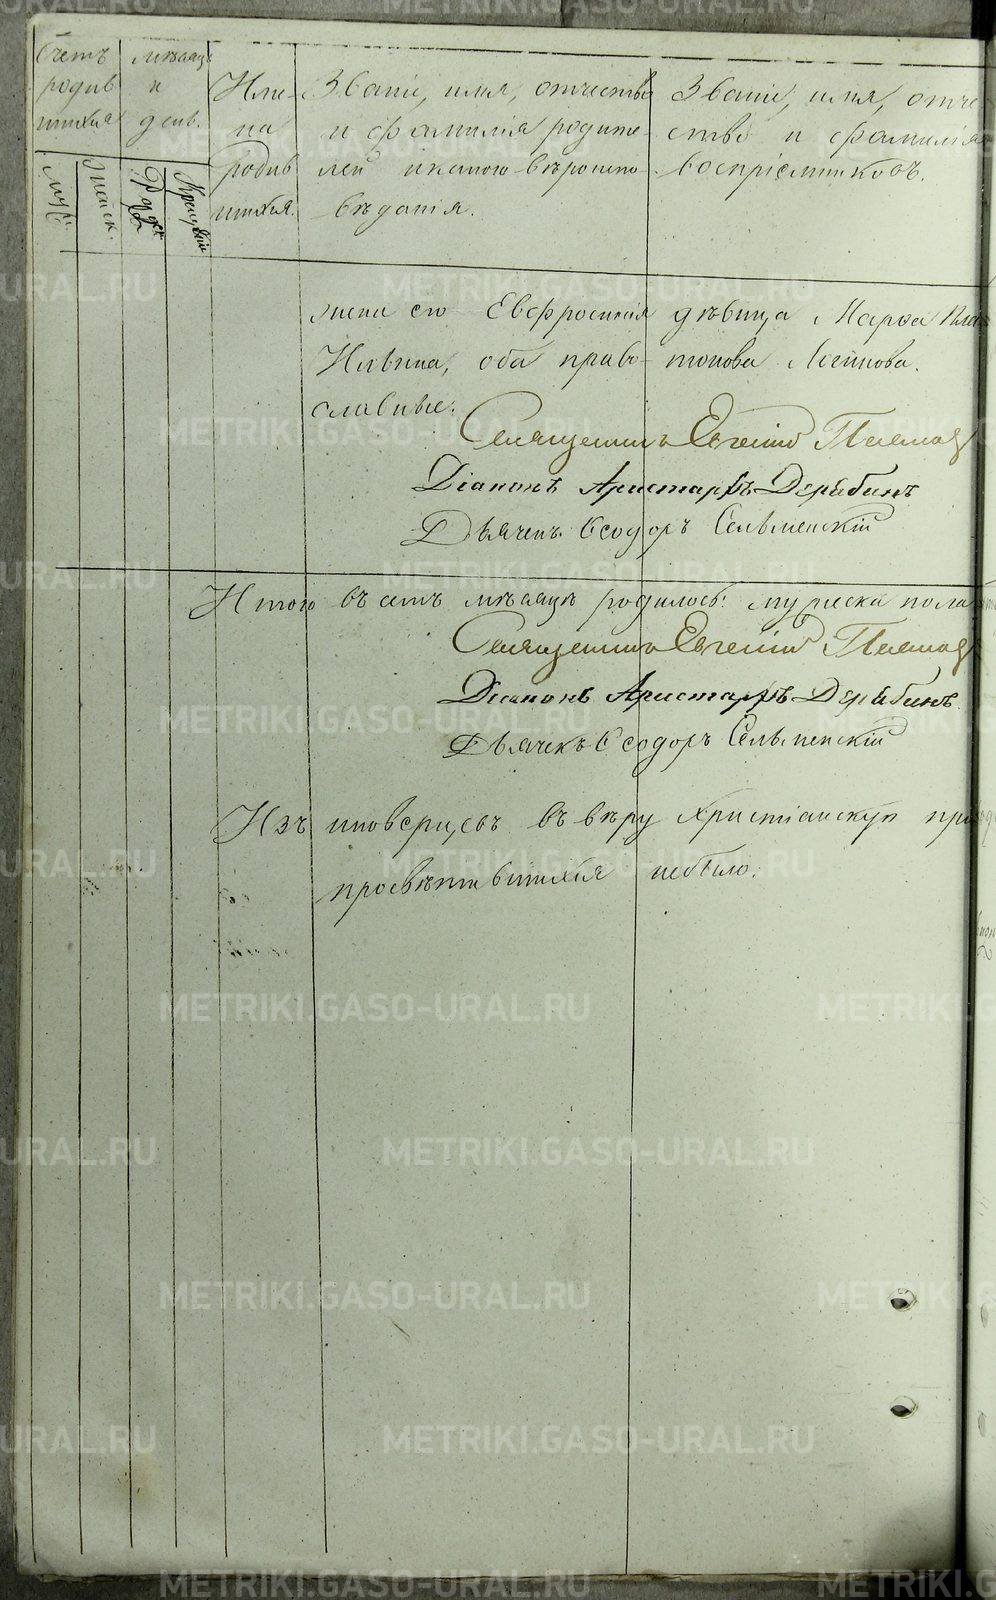 Счетъ
родив
шихся
Муж.
Женск.
Мѣсяцъ
и
день.
Крещенія
Имe-
на
родив
шихся.
Званіе, имя, отчество
и фамилія родите-
лей и какого вѣроиспо-
вѣданія.
Званіе, имя, отче-
ство и фамилія
воспріемниковъ.
жена его Евфросинія
Ильина, оба право-
славные.
дѣвица Марѳа Пла
тонова Логинова.
Священникъ Евгеній
Діаконъ Аристархъ Дерябинъ
Дьячекъ Ѳеодоръ Сельменскій
Итого въ семъ мѣсяцѣ родилось: мужеска пола
Священникъ Евгеній
Діаконъ Аристархъ Дерябинъ.
Дьячекъ Ѳеодоръ Сельменскій
Изъ иноверцевъ въ вѣру Христіанскую
просвѣтившихся небыло.
METRIKI.GASO-URAL.RU